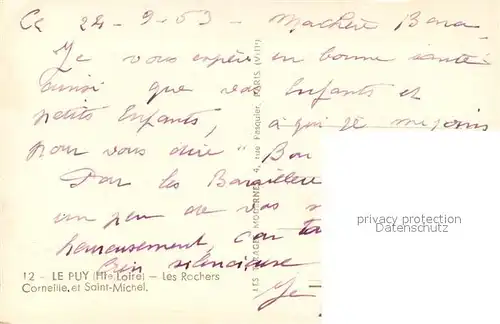 Ce 24-9-53 - Ma chère
Je vous espère en bonne santé
ainsi que vos Enfants et
petits Enfants, à qui je me joins
pour vous dire "Bon
Par les
un peu de vos
heureusement, car ta
bien silencieuse
Je
12 - LE PUY (Hte Loire) - Les Rochers
Corneille, et Saint-Michel.
LES IMAGES MODERNES 4, rue Pasquier, PARIS (VIIIe)
privacy protection
Datenschutz